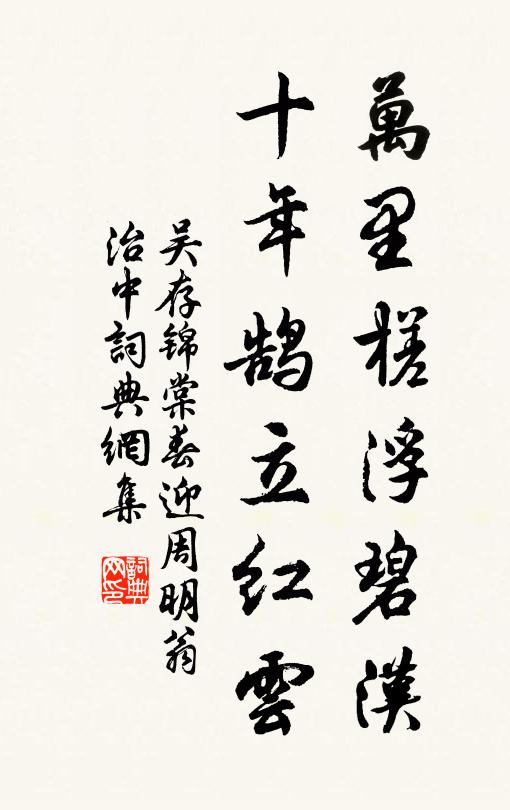 萬里槎浮碧漢
十年鹄立红雲
吴存锦棠春迎周明翁
治中詞典網集
詞典网印